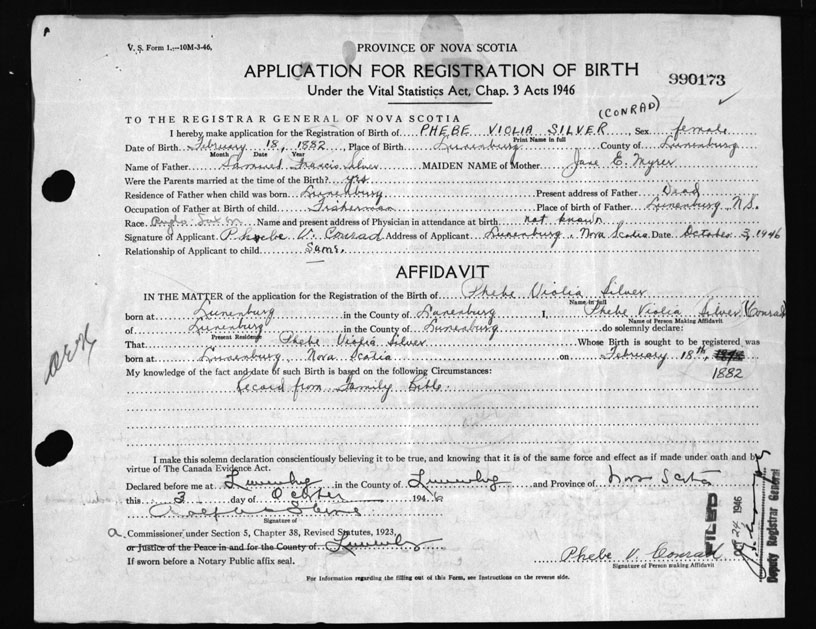 V. S. Form 1.—10M-3-46.
PROVINCE OF NOVA SCOTIA
APPLICATION FOR REGISTRATION OF BIRTH
990173
Under the Vital Statistics Act, Chap. 3 Acts 1946
(CONRAD)
TO THE REGISTRAR GENERAL OF NOVA SCOTIA
I hereby make application for the Registration of Birth of PHEBE VIOLIA SILVER, Sex female
Print Name in full
Date of Birth February 18, 1882, Place of Birth Lunenburg County of Lunenburg
Month Date Year
Name of Father Samuel Francis Silver MAIDEN NAME of Mother Jane E. Myrer
Were the Parents married at the time of the Birth? yes
Residence of Father when child was born Lunenburg Present address of Father Dead
Occupation of Father at Birth of child Fisherman Place of birth of Father Lunenburg N.S.
Race Name and present address of Physician in attendance at birth not known
Signature of Applicant Phebe V. Conrad Address of Applicant Lunenburg, Nova Scotia Date October 3, 1946
Relationship of Applicant to child Same.
AFFIDAVIT
IN THE MATTER of the application for the Registration of the Birth of Phebe Violia Silver
Name in full
born at Lunenburg in the County of Lunenburg I, Phebe Violia Silver (Conrad)
Name of Person Making Affidavit
of Lunenburg in the County of Lunenburg do solemnly declare:
Present Residence
That Phebe Violia Silver Whose Birth is sought to be registered was
born at Lunenburg, Nova Scotia on February 18th,
1882
My knowledge of the fact and date of such Birth is based on the following Circumstances:
Record from Family Bible
I make this solemn declaration conscientiously believing it to be true, and knowing that it is of the same force and effect as if made under oath and by
virtue of The Canada Evidence Act.
Declared before me at Lunenburg in the County of Lunenburg and Province of Nova Scotia
this 3 day of October 1946
Signature of
a Commissioner under Section 5, Chapter 38, Revised Statutes, 1923,
or Justice of the Peace in and for the County of Lunenburg
If sworn before a Notary Public affix seal.
Phebe V. Conrad
Signature of Person making Affidavit
For Information regarding the filling out of this Form, see Instructions on the reverse side.
FILED
24 1946
Deputy Registrar General